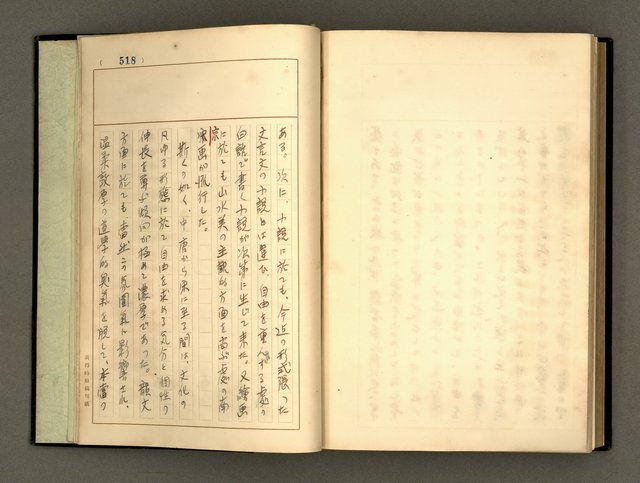 ( 518 )
ある。次に、小説に於ても、今迄の形式張った
文言文の小説とは違ひ、自由を重んずる處の
白話で書く小説が次第に生じて来た。又繪畫
に於ても山水美の主觀的方面を高ぶ處の南
宗
宋畫が流行した。
斯くの如く、中唐から宋に至る間は、文化の
凡ゆる形態に於て自由を求める気分と個性の
伸長を尊ぶ傾向が極めて濃厚であった。韻文
方面に於ても、當然この雰圍氣に影響され、
温柔敦厚の道學的臭気を脱して、本當の